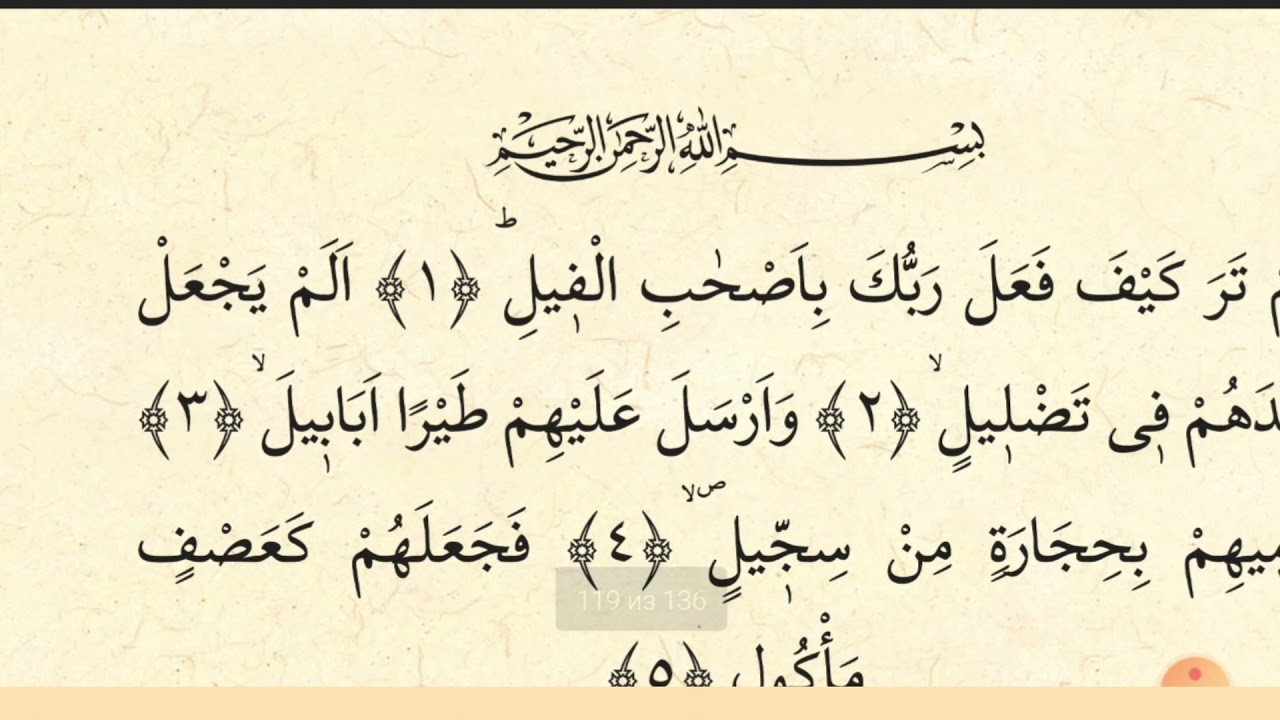 بِسْمِ اللهِ الرَّحْمٰنِ الرَّحِيمِ
تَرَ كَيْفَ فَعَلَ رَبُّكَ بِاَصْحٰبِ الْفٖيلِؕ ﴿١﴾ اَلَمْ يَجْعَلْ
فٖى تَضْلٖيلٍۙ ﴿٢﴾ وَاَرْسَلَ عَلَيْهِمْ طَيْرًا اَبَابٖيلَۙ ﴿٣﴾
بِحِجَارَةٍ مِنْ سِجّٖيلٍۙۖ ﴿٤﴾ فَجَعَلَهُمْ كَعَصْفٍ
119 из 136
مَأْكُولٍ ﴿٥﴾